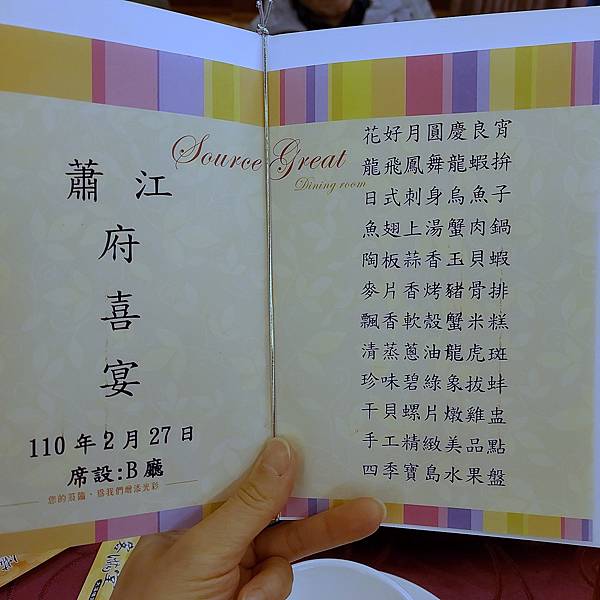 Source Great
Dining room
蕭 江
府
喜
宴
110 年 2 月 27 日
席設:B 廳
您的蒞臨、為我們增添光彩
花好月圓慶良宵
龍飛鳳舞龍蝦拚
日式刺身烏魚子
魚翅上湯蟹肉鍋
陶板蒜香玉貝蝦
麥片香烤豬骨排
飄香軟殼蟹米糕
清蒸蔥油龍虎斑
珍味碧綠象拔蚌
干貝螺片燉雞盅
手工精緻美品點
四季寶島水果盤